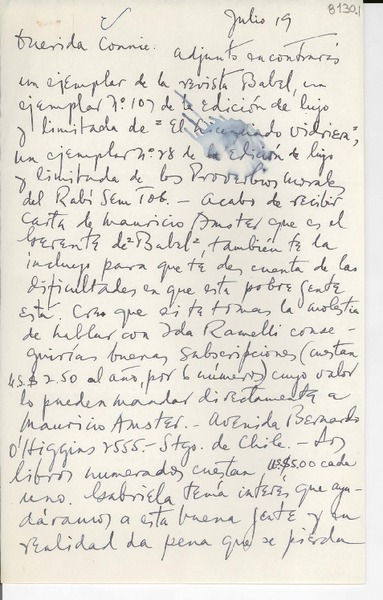 8130.1
Julio 19
Querida Connie: adjunto encontrarás
un ejemplar de la revista Babel, un
ejemplar Nº 107 de la Edición de lujo
y limitada de "El Licenciado Vidriera",
un ejemplar Nº 28 de la Edición de lujo
y limitada de los Proverbios Morales
del Rabí Sem Tob. - Acabo de recibir
carta de Mauricio Amster que es el
Gerente de "Babel", también te la
incluyo para que te des cuenta de las
dificultades en que esta pobre gente
está. Creo que si te tomas la molestia
de hablar con Ida Ramelli conse-
guirías buenas subscripciones (cuestan
US.$ 2.50 al año, por 6 números) cuyo valor
lo pueden mandar directamente a
Mauricio Amster. - Avenida Bernardo
O'Higgins 2555. - Stgo. de Chile. - Los
libros numerados cuestan US$5.00 cada
uno. Gabriela tenía interés que ayu-
dáramos a esta buena gente y en
realidad da pena que se pierda